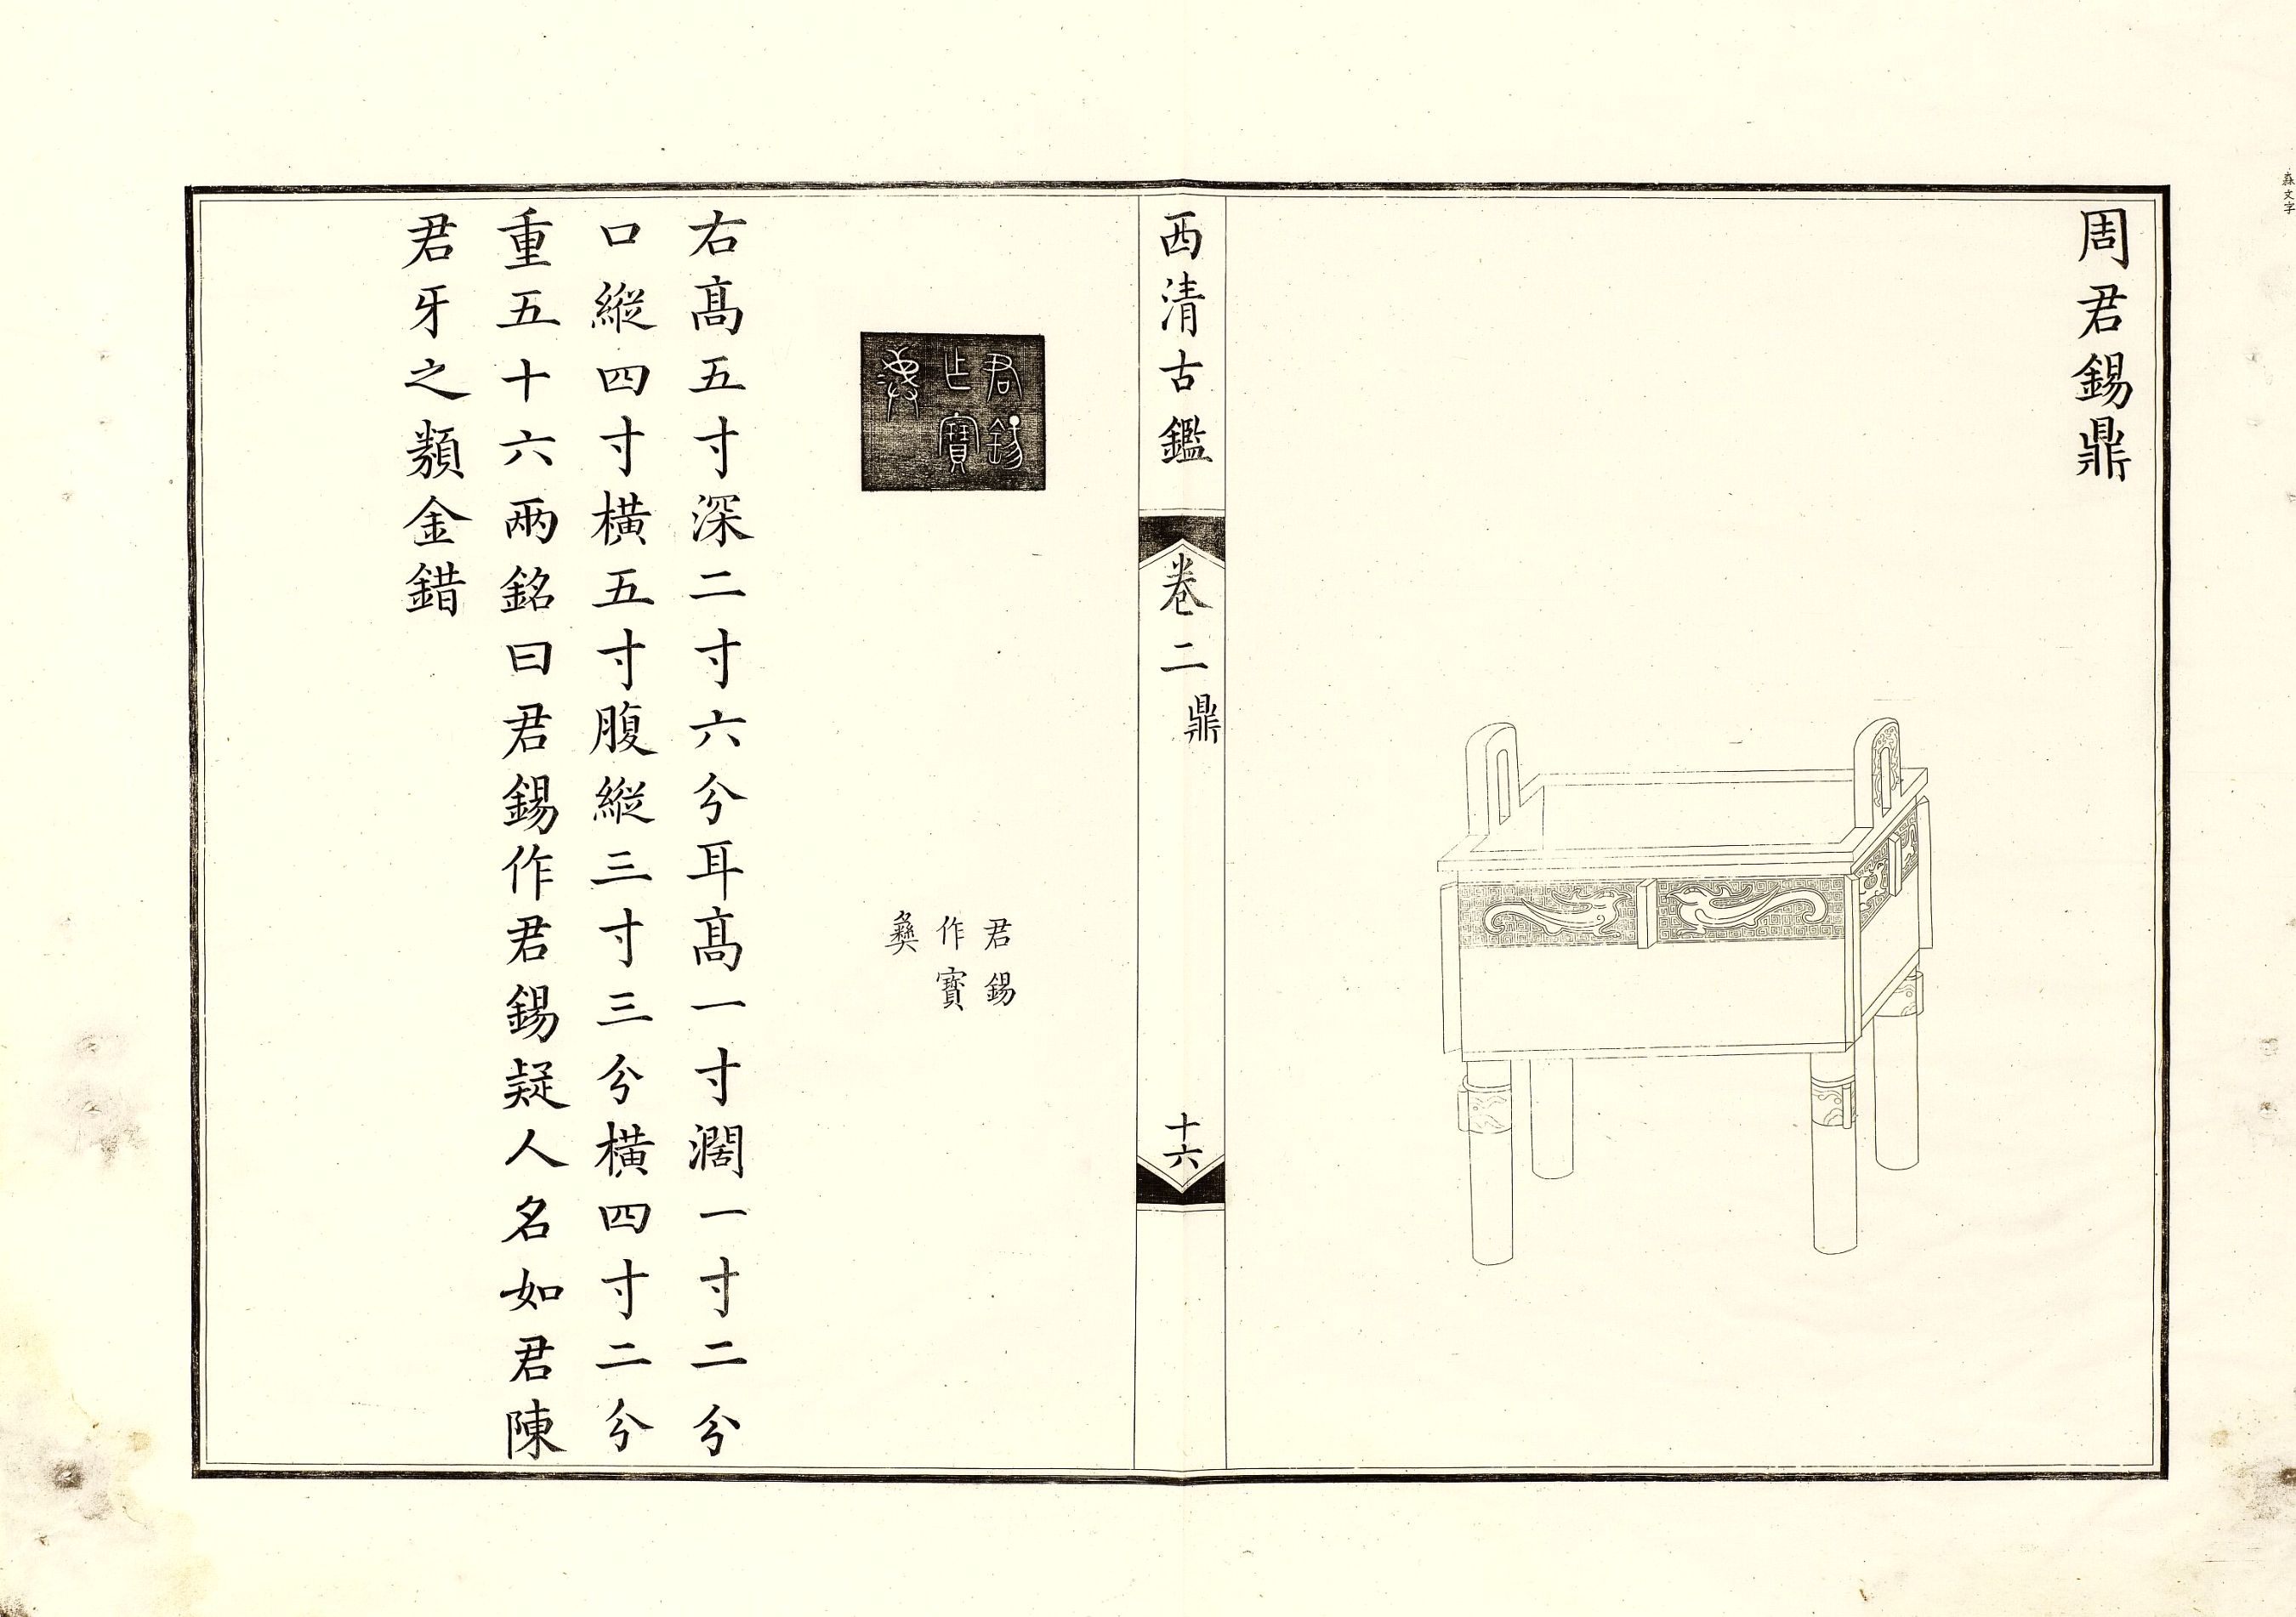 周君錫鼎
西清古鑑
卷二
鼎
十六
君錫
作寶
彝
君錫
作寶
彝
右高五寸深二寸六分耳高一寸濶一寸二分
口縱四寸橫五寸腹縱三寸三分橫四寸二分
重五十六兩銘曰君錫作君錫疑人名如君陳
君牙之類金錯